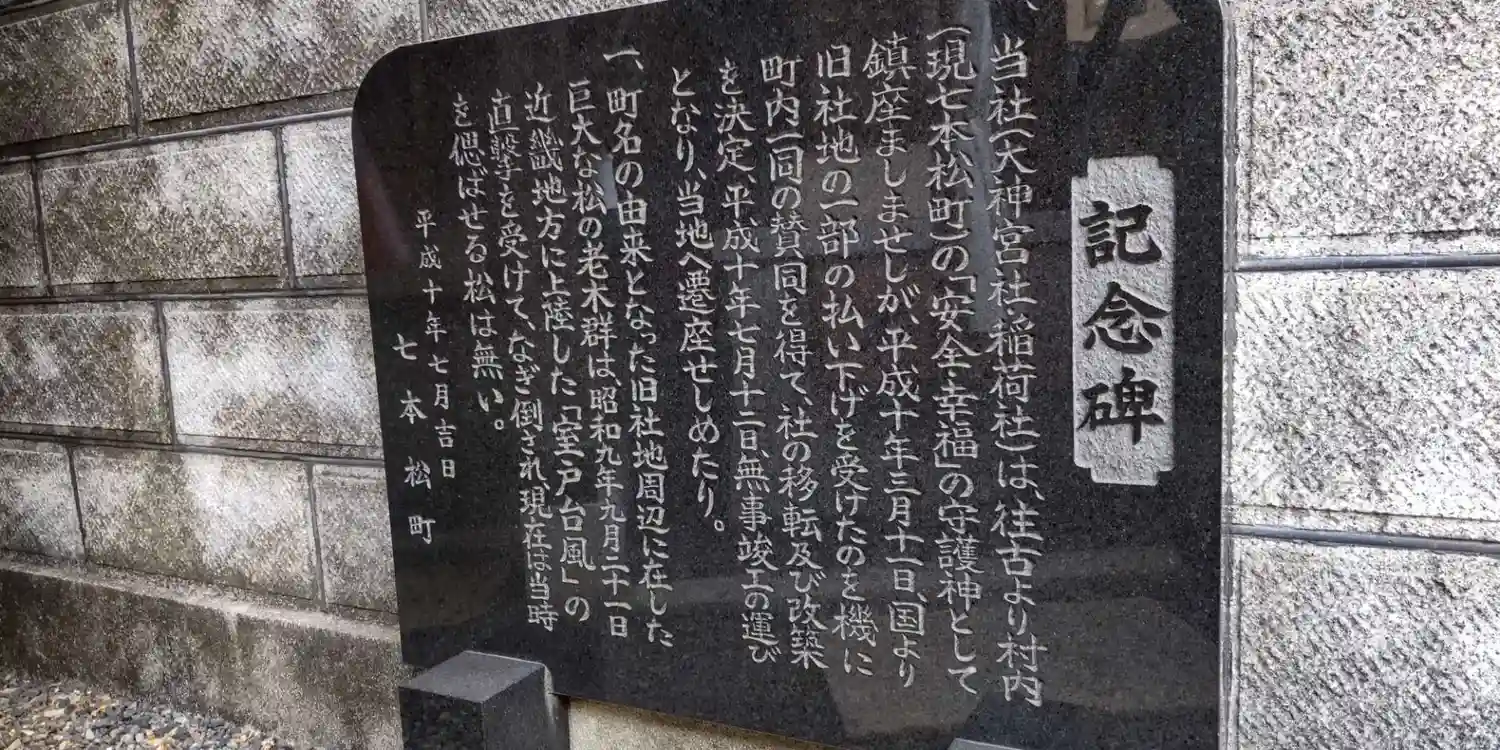 記念碑
、当社(大神宮社・稲荷社)は、往古より村内
(現七本松町)の「安全・幸福」の守護神として
鎮座ましませしが、平成十年三月十一日、国より
旧社地の一部の払い下げを受けたのを機に
町内一同の賛同を得て、社の移転及び改築
を決定、平成十年七月十二日、無事竣工の運び
となり、当地へ遷座せしめたり。
一、町名の由来となった旧社地周辺に在した
巨大な松の老木群は、昭和九年九月二十一日
近畿地方に上陸した「室戸台風」の
直撃を受けて、なぎ倒され現在は当時
を偲ばせる松は無い。
平成十年七月吉日
七本松町